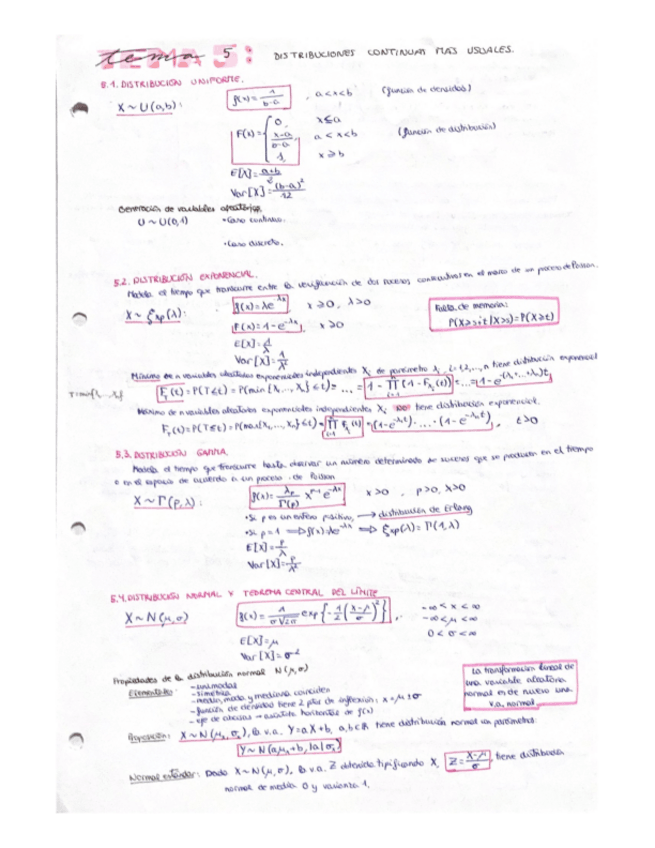 tema 5: DISTRIBUCIONES CONTINUAS MÁS USUALES.
5.1. DISTRIBUCIÓN UNIFORME.
X ~ U(a,b): f(x) = 1/(b-a) , a<x<b (función de densidad)
F(x) = { 0, x≤a
(x-a)/(b-a) a<x<b (función de distribución)
1, x≥b
E[X] = (a+b)/2
Var[X] = (b-a)²/12
Generación de variables aleatorias.
U ~ U(0,1) • Caso continuo.
• Caso discreto.
5.2. DISTRIBUCIÓN EXPONENCIAL.
Modela el tiempo que transcurre entre la verificación de dos sucesos consecutivos en el marco de un proceso de Poisson.
X ~ ξxp(λ): f(x) = λe^-λx x≥0, λ>0
Falta de memoria:
F(x) = 1-e^-λx , x>0
P(X≥s+t/X≥s) = P(X≥t)
E[X] = 1/λ
Var[X] = 1/λ²
Mínimo de n variables aleatorias exponenciales independientes Xi de parámetro λi, i=1,2,...,n tiene distribución exponencial
F_T(t) = P(T≤t) = P(min{X1,...,Xn}≤t) = ... = 1 - ∏(1-F_Xi(t)) = ... = 1-e^-(λ1+...+λn)t
Máximo de n variables aleatorias exponenciales independientes Xi tiene distribución exponencial.
F_T(t) = P(T≤t) = P(max{X1,...,Xn}≤t) = ∏ Fi(t) = (1-e^-λ1t)·...·(1-e^-λnt) , t>0
5.3. DISTRIBUCIÓN GAMMA.
Modela el tiempo que transcurre hasta observar un número determinado de sucesos que se producen en el tiempo
o en el espacio de acuerdo a un proceso de Poisson
X ~ Γ(p,λ): f(x) = λp/Γ(p) x^p-1 e^-λx x>0 , p>0, λ>0
• Si p es un entero positivo, → distribución de Erlang
• Si p=1 ⇒ f(x)=λe^-λx ⇒ ξxp(λ) = Γ(1,λ)
E[X] = p/λ
Var[X] = p/λ²
5.4. DISTRIBUCIÓN NORMAL Y TEOREMA CENTRAL DEL LÍMITE
X ~ N(μ,σ) f(x) = 1/(σ√2π) exp{-1/2((x-μ)/σ)²} , -∞<x<∞
-∞<μ<∞
0<σ<∞
E[X]=μ
Var[X]=σ²
Propiedades de la distribución normal N(μ,σ)
Elementales: - unimodal
- simetría
- media, moda y mediana coinciden
- función de densidad tiene 2 ptos de inflexión: x=μ±σ
- eje de abcisas → asíntota horizontal de f(x)
La transformación lineal de
una variable aleatoria
normal es de nuevo una
v.a. normal
Proposición: X ~ N(μx, σx), la v.a. Y=aX+b, a,b∈ℝ tiene distribución normal con parámetros:
Y ~ N(aμx+b, |a|σx)
Normal estándar: Dado X ~ N(μ,σ), la v.a. Z obtenida tipificando X, Z = (X-μ)/σ , tiene distribución
normal de media 0 y varianza 1.